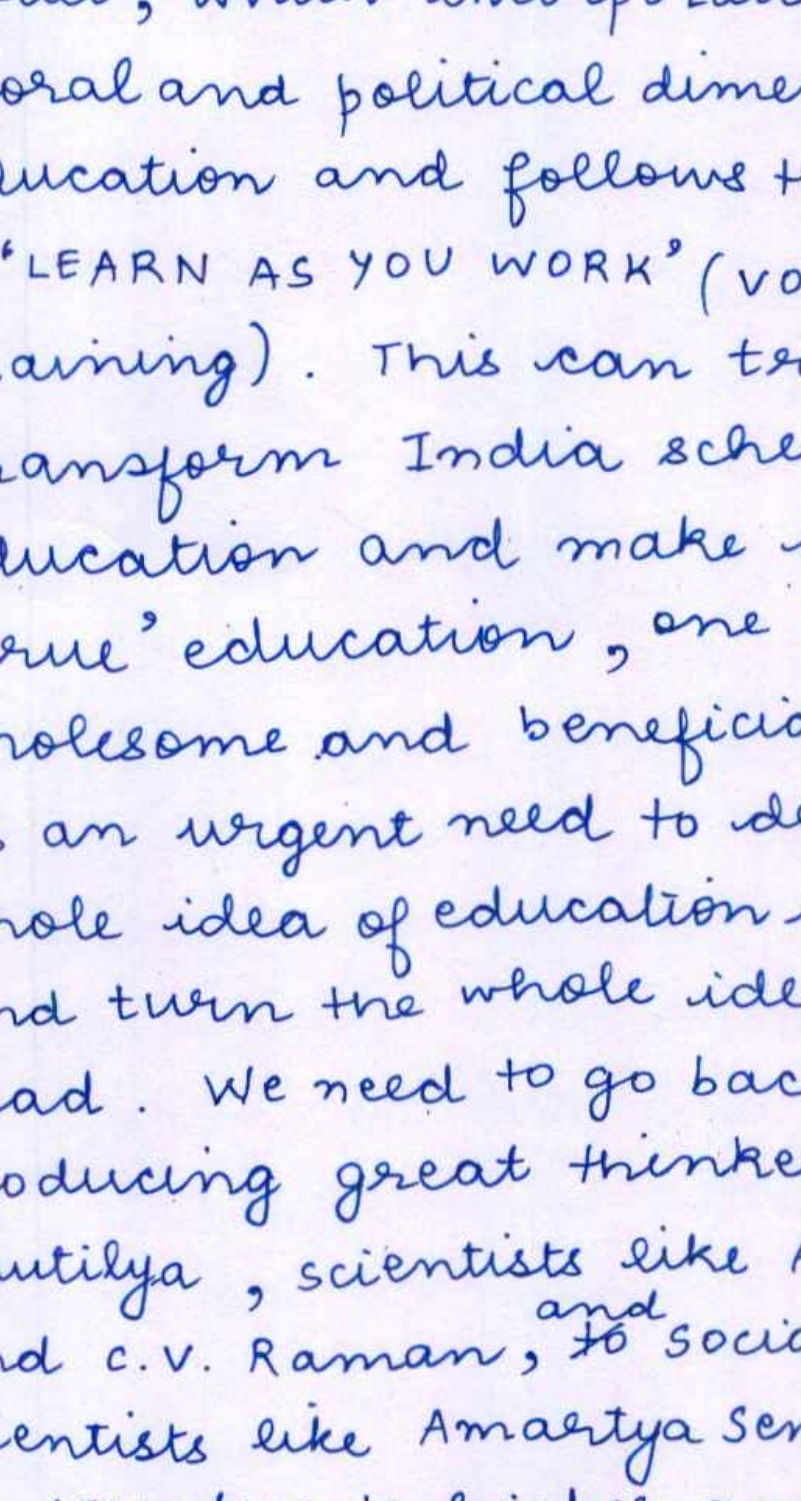 oral and political dime
ucation and follows t
'LEARN AS YOU WORK' (VO
aining). This can tr
ansform India sche
ducation and make
rue' education, one
holesome and beneficia
an urgent need to de
hole idea of education
nd turn the whole ide
ad. We need to go bac
oducing great thinke
utilya, scientists like A
and
nd C.V. Raman, to socia
ientists like Amartya Sen